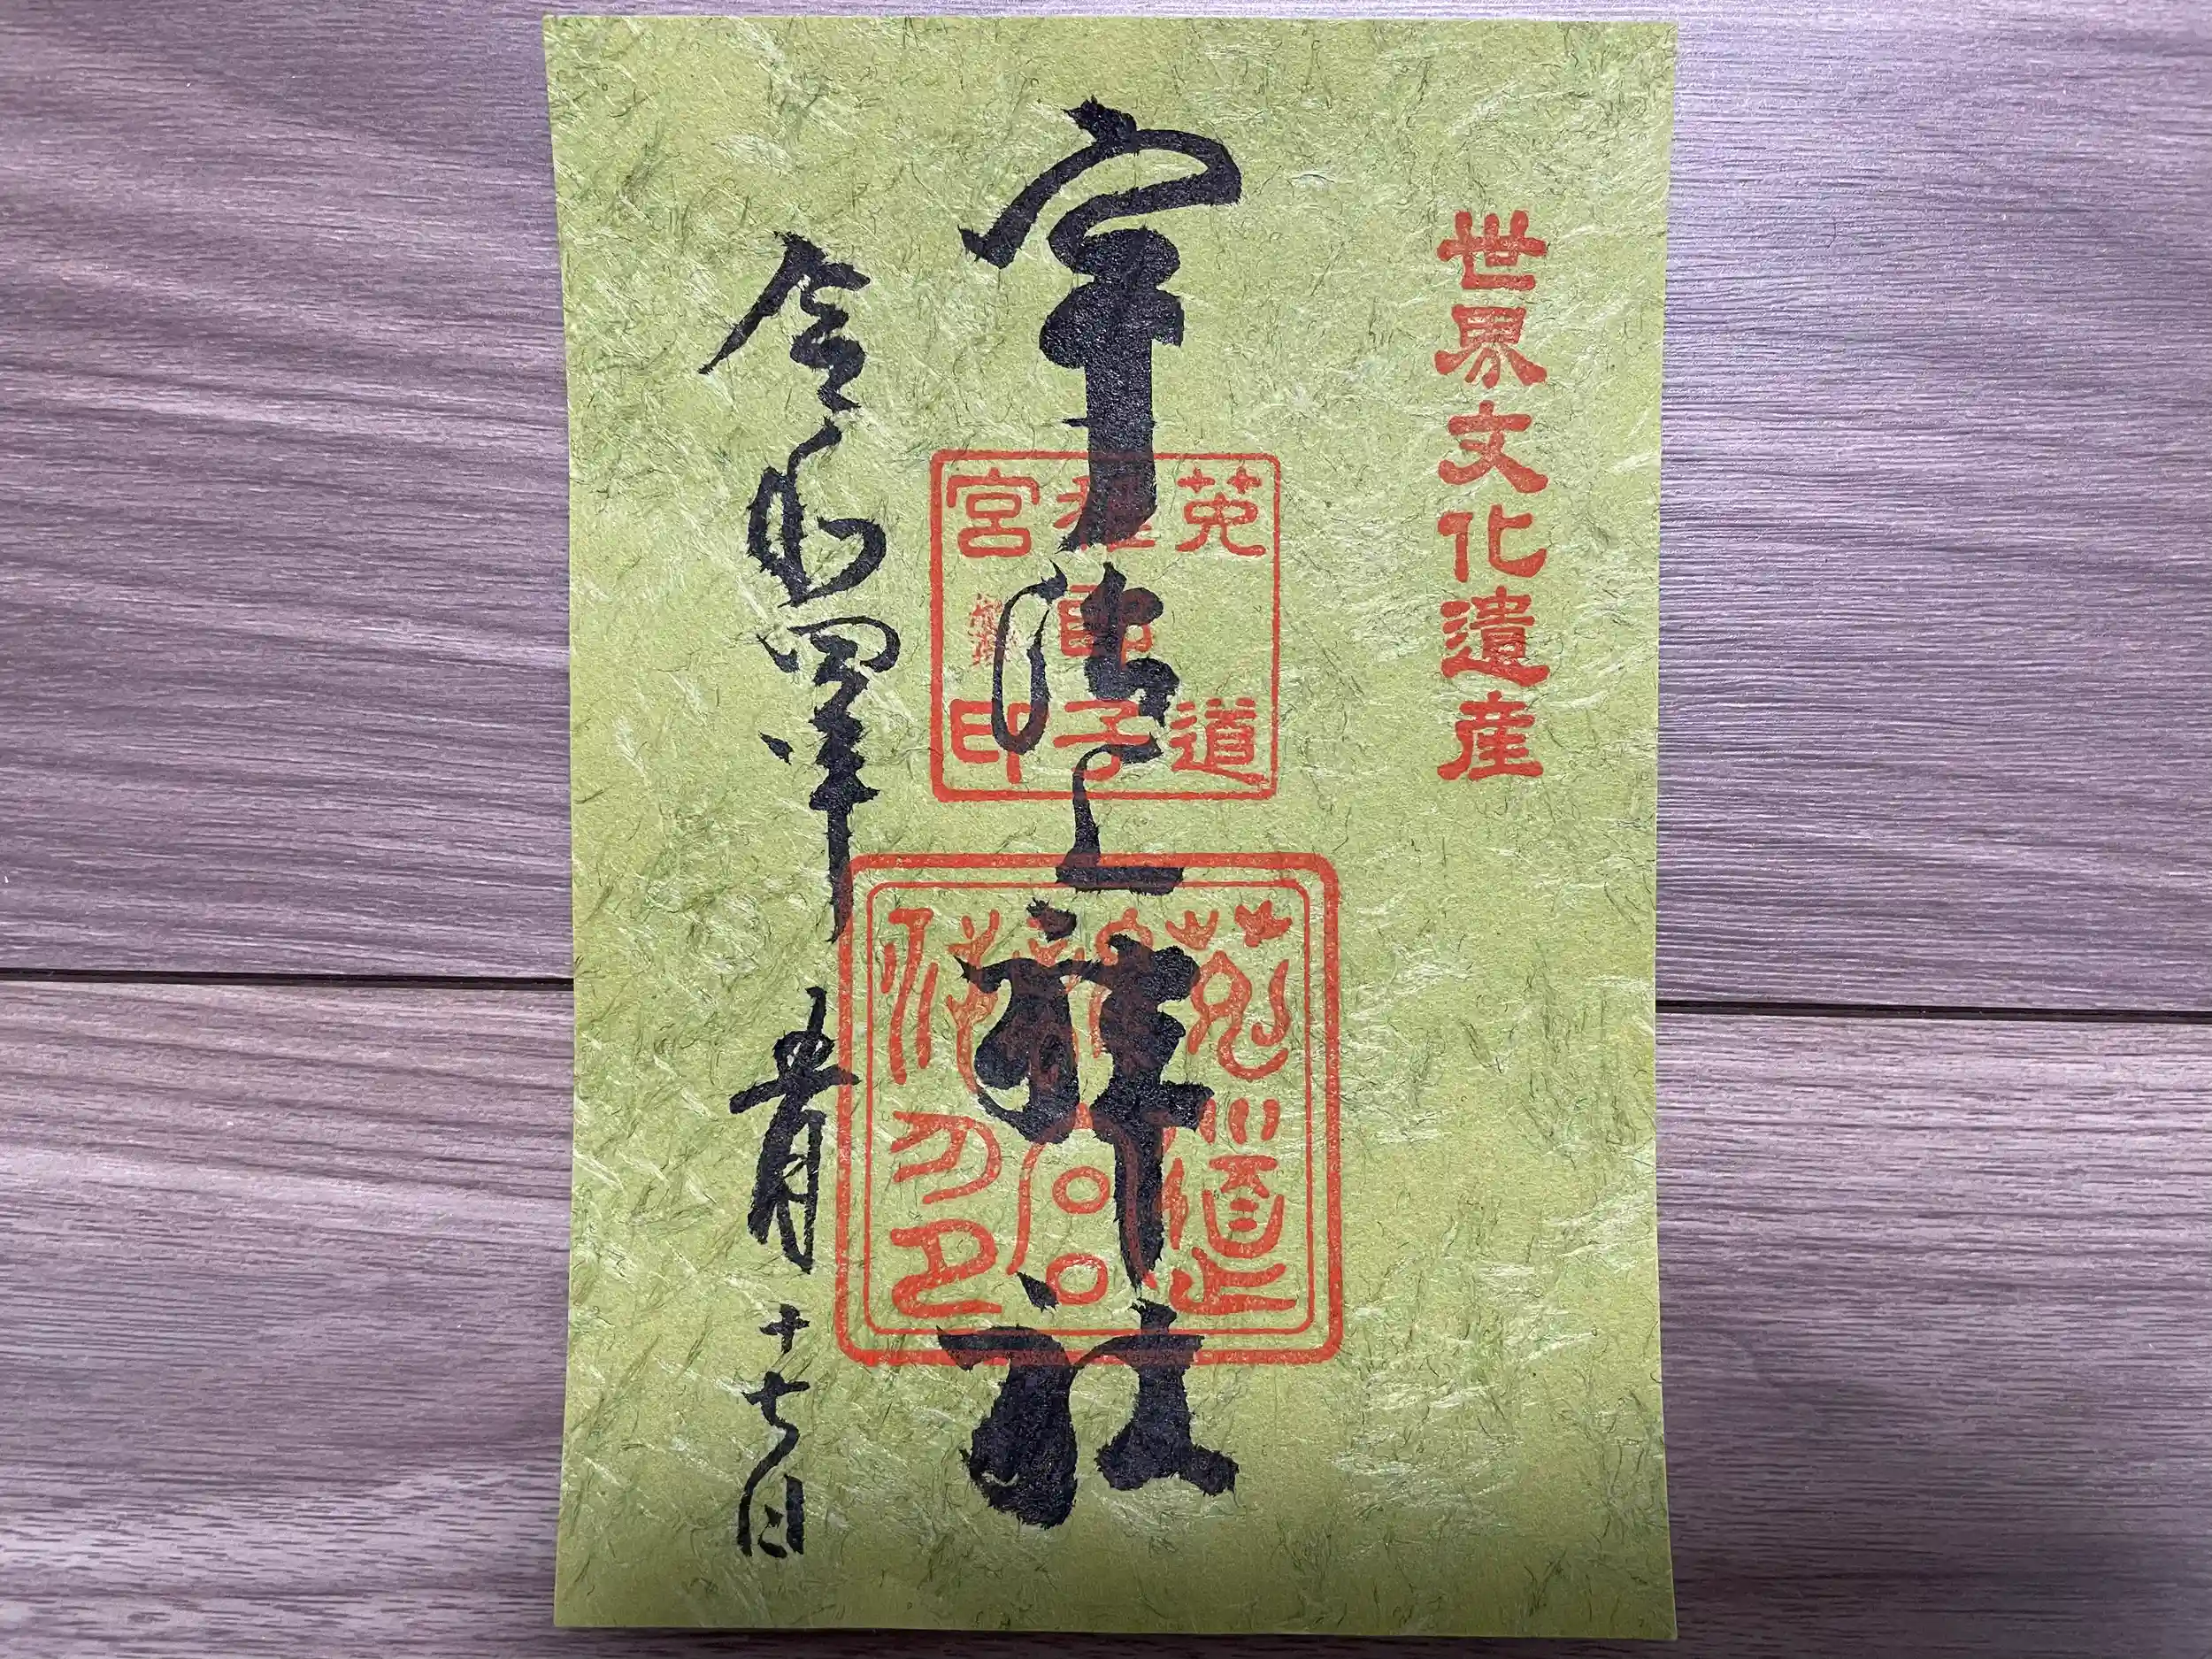 世界文化遺産
宇治上神社
菟道
稚郎子
宮印
菟道
令和四年 月十七日